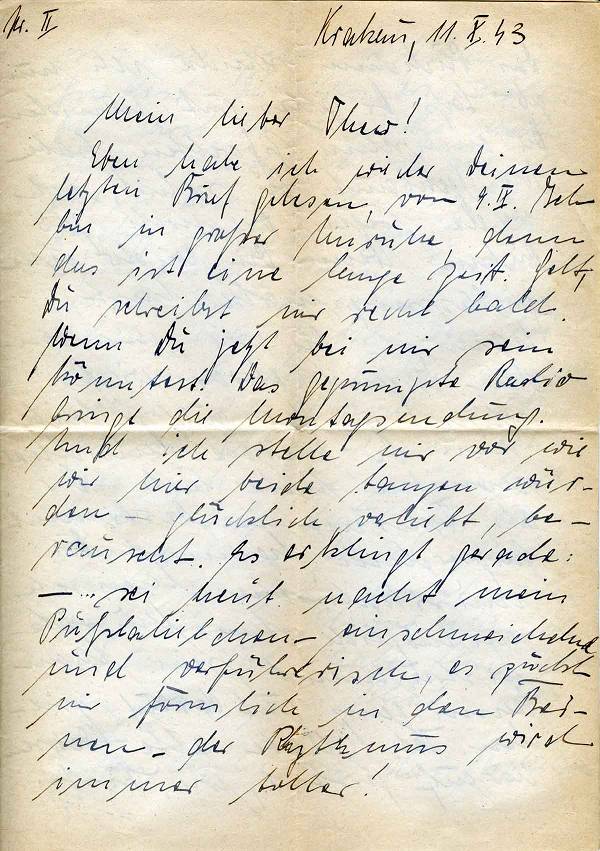 Nr. II
Krakau, 11.X.43
Mein lieber Theo!
Eben habe ich wieder Deinen
letzten Brief gelesen, vom 9.IX. Ich
bin in großer Unruhe, denn
das ist eine lange Zeit. Gelt,
Du schreibst mir recht bald.
Wenn Du jetzt bei mir sein
könntest! Das gepumpte Radio
bringt die Montagsendung.
Und ich stelle mir vor wie
wir hier beide tanzen wür-
den – glücklich, verliebt, be-
rauscht. Es erklingt gerade:
– ... sei heut nacht mein
Pußtaliebchen – einschmeichelnd
und verführerisch, es zuckt
mir förmlich in den Bei-
nen – der Rhythmus wird
immer toller!